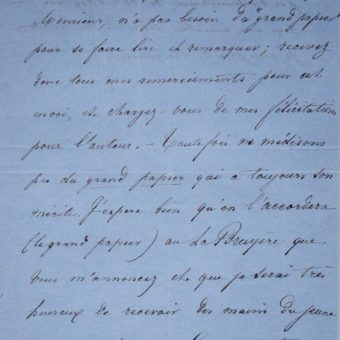 Monsieur, n'a pas besoin du "grand papier
pour se faire lire et remarquer ; recevez
donc tous mes remerciements pour cet
envoi, et chargez vous de mes félicitations
pour l'auteur. - Toutefois ne médisons
pas du grand papier qui a toujours son
mérite. J'espère bien qu'on l'accordera
(le grand papier) au La Bruyère que
vous m'annoncez et que je serai très
heureux de recevoir des mains du jeune